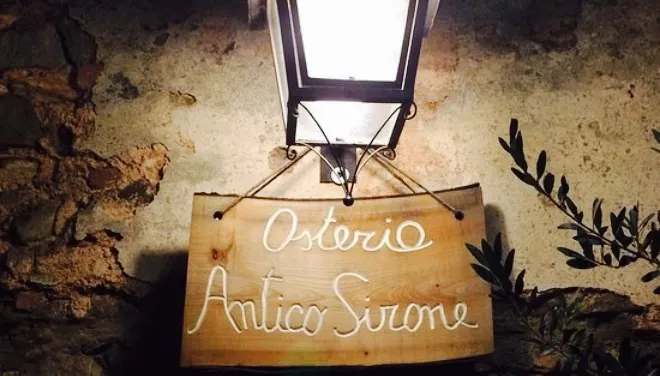 Osteria
Antico Sirone